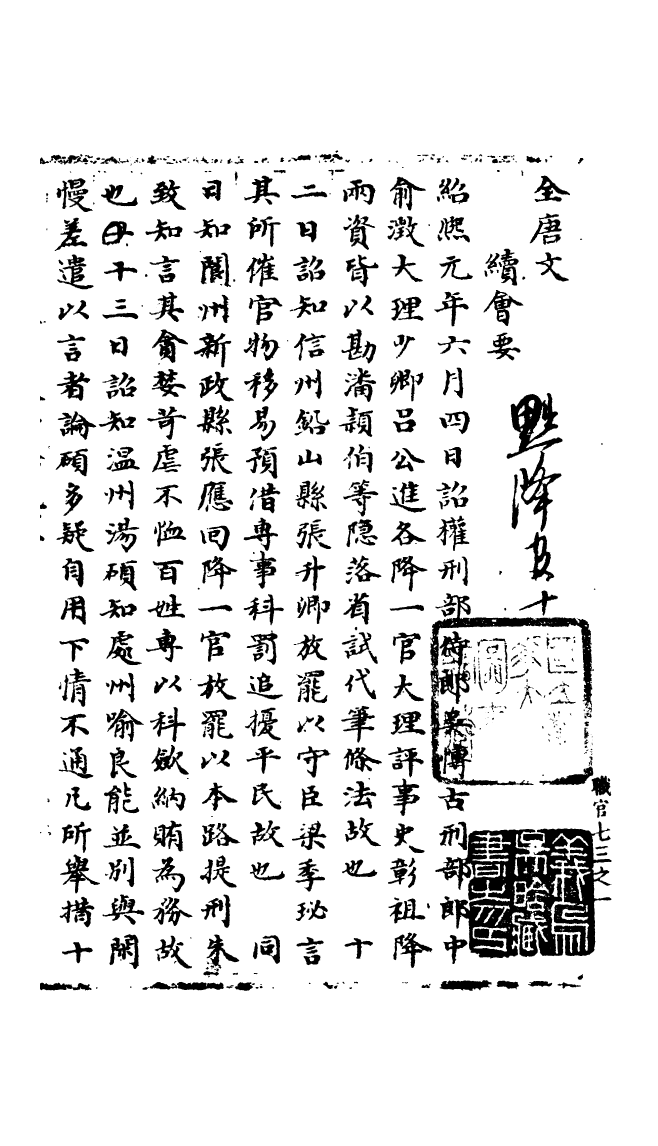 全唐文
續會要
黜降官十
紹熙元年六月四日詔權刑部侍郎吳博古刑部郎中
俞澂大理少卿呂公進各降一官大理評事史彰祖降
兩資皆以勘潘頴伯等隐落省試代筆條法故也　十
二日詔知信州鉛山縣張升卿放罷以守臣梁季珌言
其所催官物移易預借專事科罰追擾平民故也　同
日知閬州新政縣張應回降一官放罷以本路提刑朱
致知言其貪婪苛虐不恤百姓專以科歛納賄為務故
也毋十三日詔知温州湯碩知處州喻良能並別與閑
慢差遣以言者論碩多疑自用下情不通凡所舉措十
職官七三之一